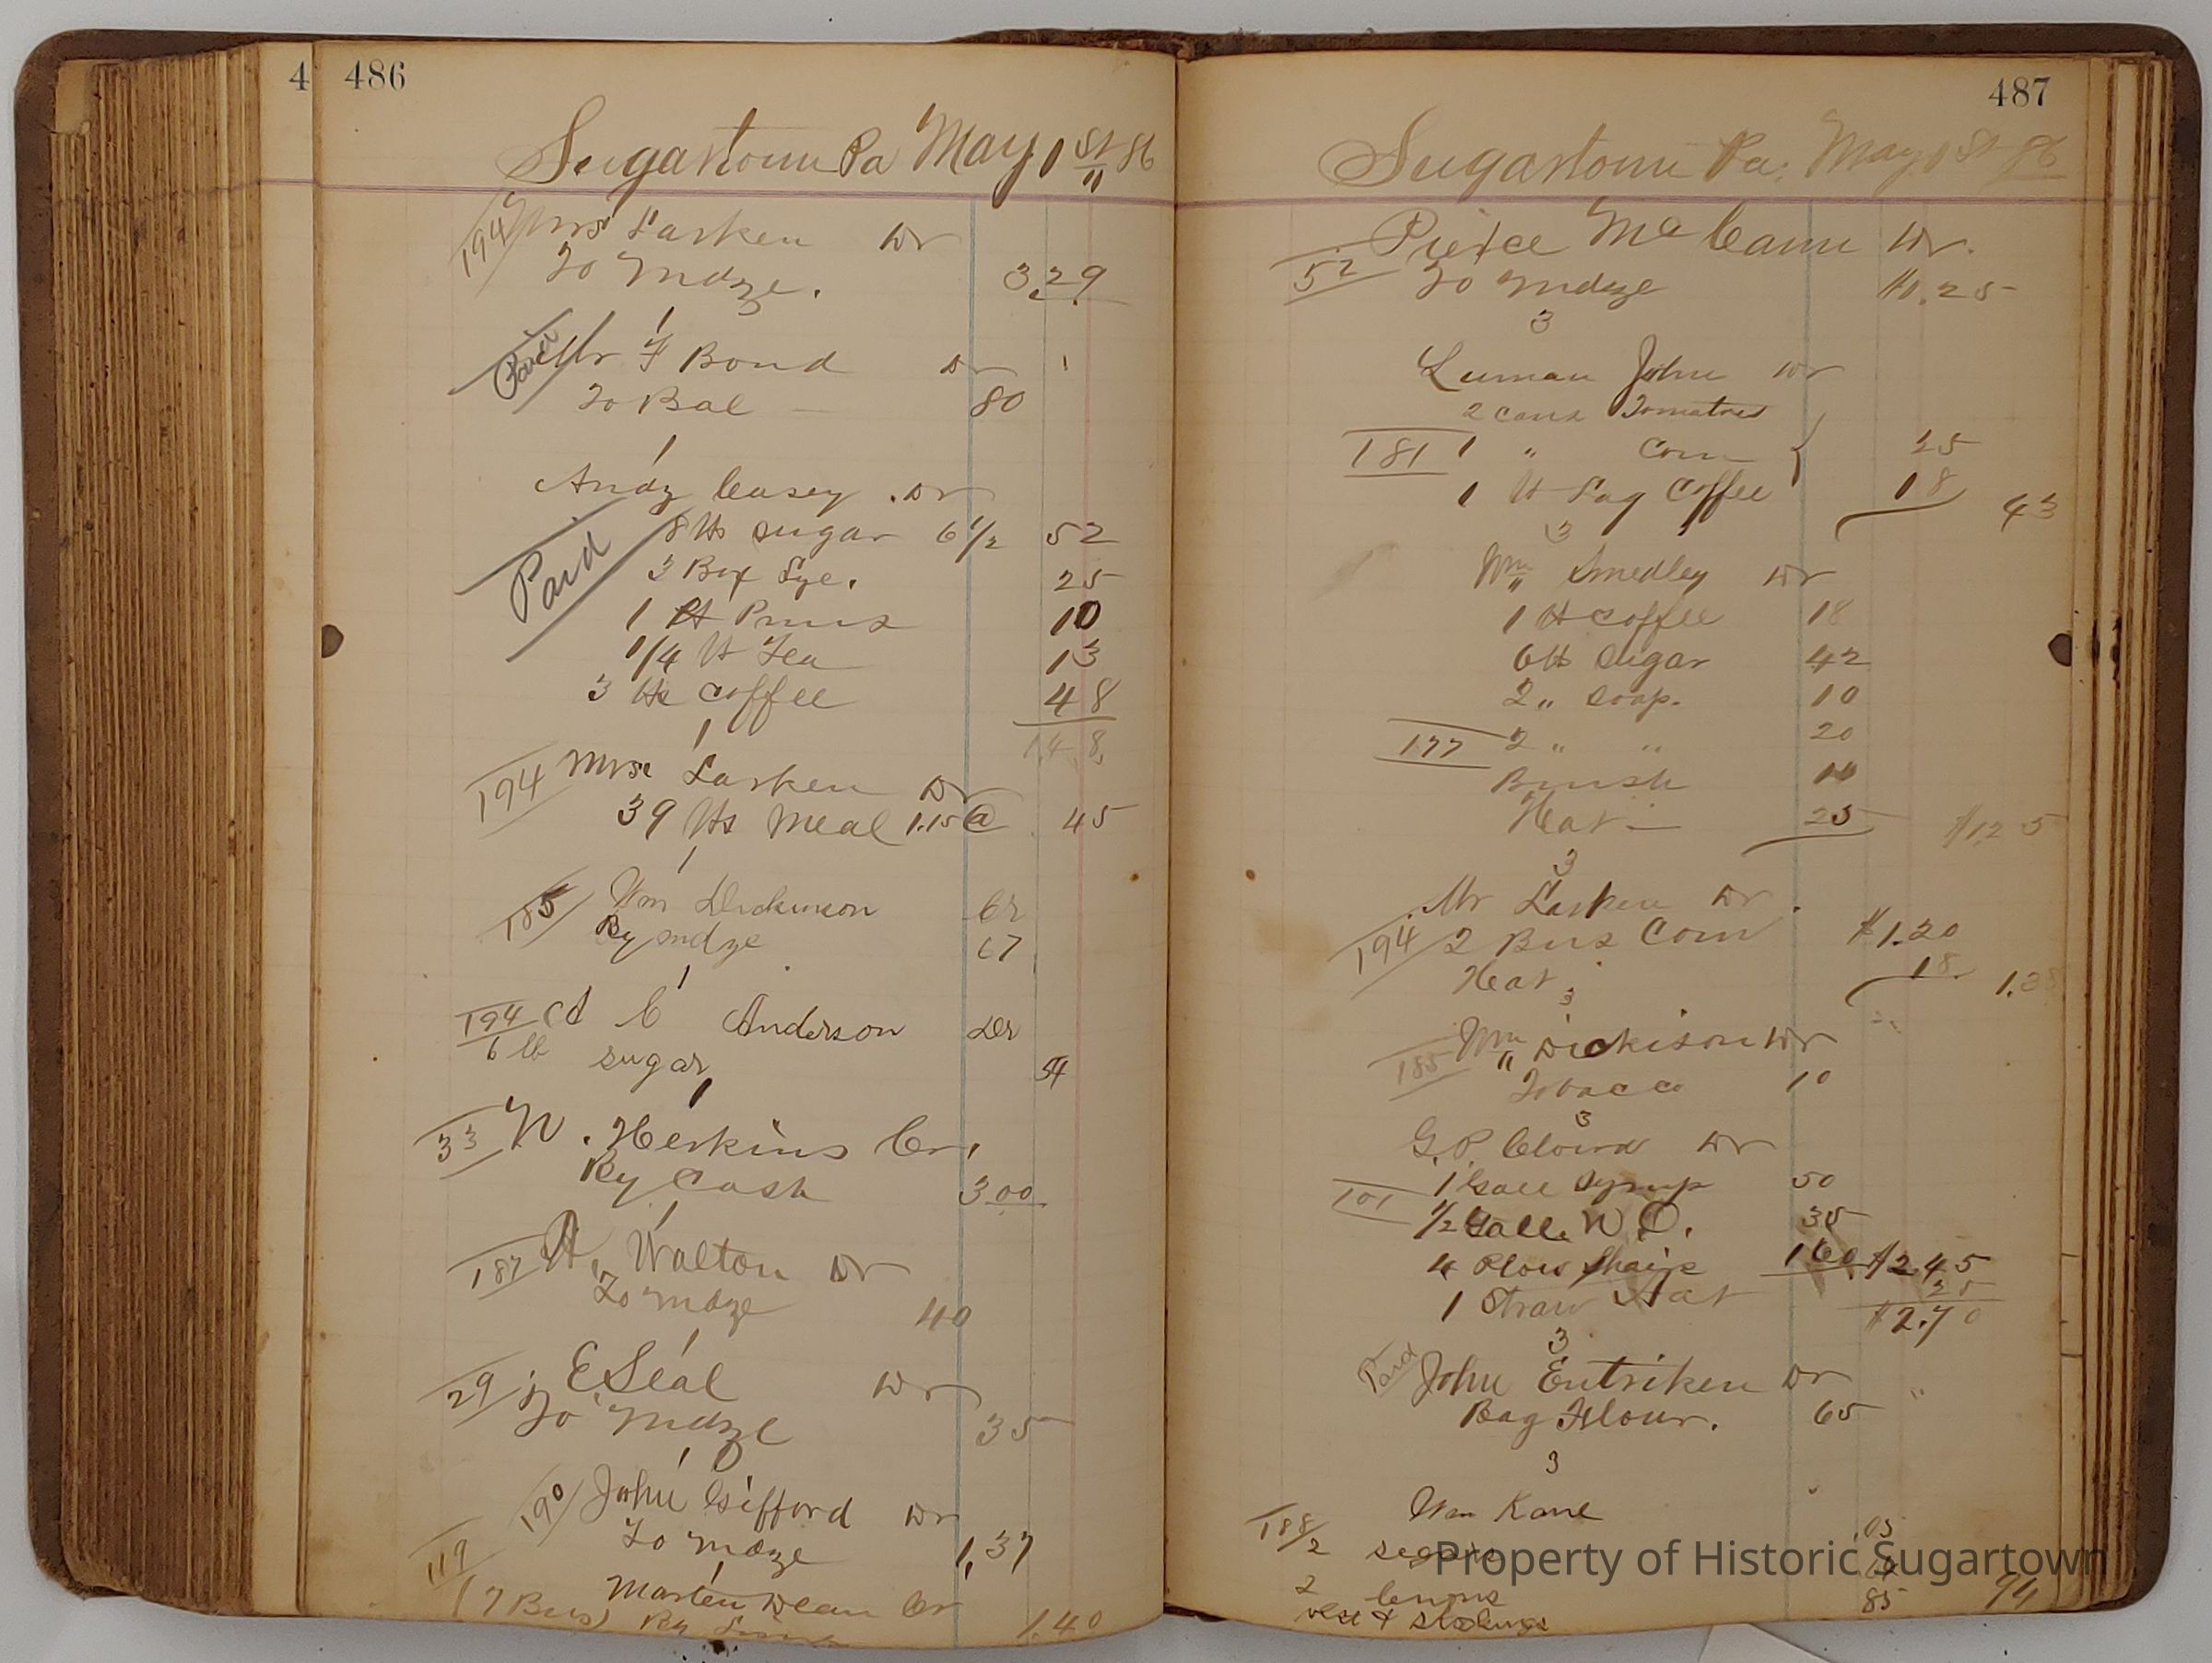 4 486
Sugartown Pa May 1st 86
194 Mrs Larken Dr
To Mdze. 3.29
1
Paid Mr F Bond Dr
To Bal 80
1
Andy Casey Dr
Paid 8 lb sugar 6 1/2 52
3 Box Lye. 25
1 lb Pruns 10
1/4 lb Tea 13
3 lbs coffee 48
1 1.48
194 Mrs Larken Dr
39 lbs Meal 1.15 @ 45
1
185 Wm Dickinson Cr
By mdze 67
1
194 A C Anderson Dr
6 lb sugar 54
1
33 W. Herkins Cr.
By Cash 3.00
1
187 H. Walton Dr
To mdze 40
1
29 E Seal Dr
To Mdze 35
1
190 John Gifford Dr
To mdze 1,37
1
119 Marten Dean Cr
(7 Bus) By 1.40
487
Sugartown Pa. May 1st 86
Pierce McCann Dr.
52 To mdze $0.25
3
Luman John Dr
2 cans Tomatoes
181 1 " Corn 25
1 lb Lag Coffee 18 43
3
Wm Smedley Dr
1 lb coffee 18
6 lb sugar 42
2 " soap. 10
177 2 " " 20
Brush 10
Heat 25 $1.25
3
Mr Larken Dr.
194 2 Bus Corn $1.20
Heat. 18 1.38
3
185 Wm Dickison Dr
Tobacco 10
3
G.P. Cloird Dr
101 1 Gall Syrup 50
1/2 Gall. W.O. 35
4 Plow Shairs 160 $2.45
1 Straw Hat 25
$2.70
3
Paid John Entriken Dr "
Bag Flour. 65
3
Wm Kane
188/2 segars .05
2 lemons 04
vest & stockings 85 94
Property of Historic Sugartown